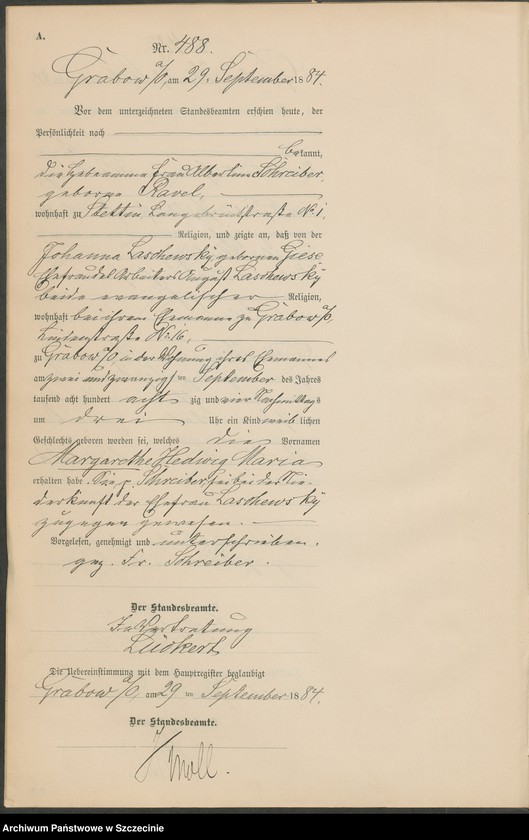 A.
Nr. 488.
Grabow a/O, am 29. September 1884.
Vor dem unterzeichneten Standesbeamten erschien heute, der
Persönlichkeit nach
bekannt,
die Hebeamme Frau Albertine Schreiber,
geborne Ravel,
wohnhaft zu Stettin, Langebrückstraße No 1,
Religion, und zeigte an, daß von der
Johanna Laschewsky geborenen Giese
Ehefrau des Arbeiters August Laschewsky
beide evangelischer Religion,
wohnhaft bei ihrem Ehemanne zu Grabow a/O,
Lindenstraße No 16,
zu Grabow a/O in der Wohnung ihres Ehemannes
am zwei und zwanzigsten September des Jahres
tausend acht hundert achtzig und vier Nachmittags
um drei Uhr ein Kind weiblichen
Geschlechts geboren worden sei, welches die Vornamen
Margarethe Hedwig Maria
erhalten habe. Die p. Schreiber sei bei der Nie-
derkunft der Ehefrau Laschewsky
zugegen gewesen.
Vorgelesen, genehmigt und unterschrieben.
gez. Fr. Schreiber.
Der Standesbeamte.
In Vertretung
Lückert
Die Uebereinstimmung mit dem Hauptregister beglaubigt
Grabow a/O, am 29 ten September 1884.
Der Standesbeamte.
Knoll.
Archiwum Państwowe w Szczecinie